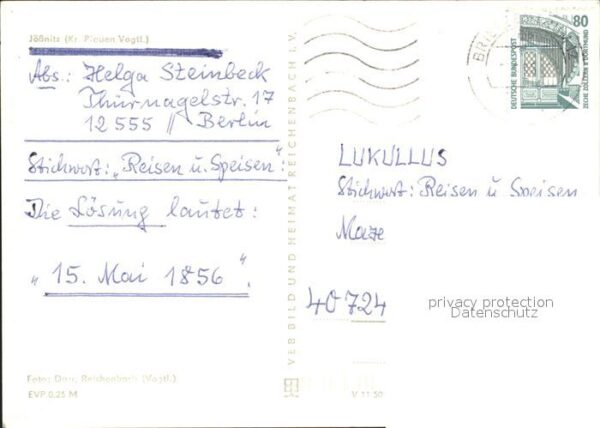 Jößnitz (Kr. Plauen Vogtl.)
Abs.: Helga Steinbeck
Thürnagelstr. 17
12 555 // Berlin
Stichwort: „Reisen u. Speisen“.
Die Lösung lautet:
„15. Mai 1856“.
Foto: Darr, Reichenbach (Vogtl.)
EVP 0,25 M
VEB BILD UND HEIMAT REICHENBACH I. V.
V 11 50
80
DEUTSCHE BUNDESPOST
ZECHE ZOLLERN II DORTMUND
LUKULLUS
Stichwort: Reisen u Speisen
40 724
privacy protection
Datenschutz